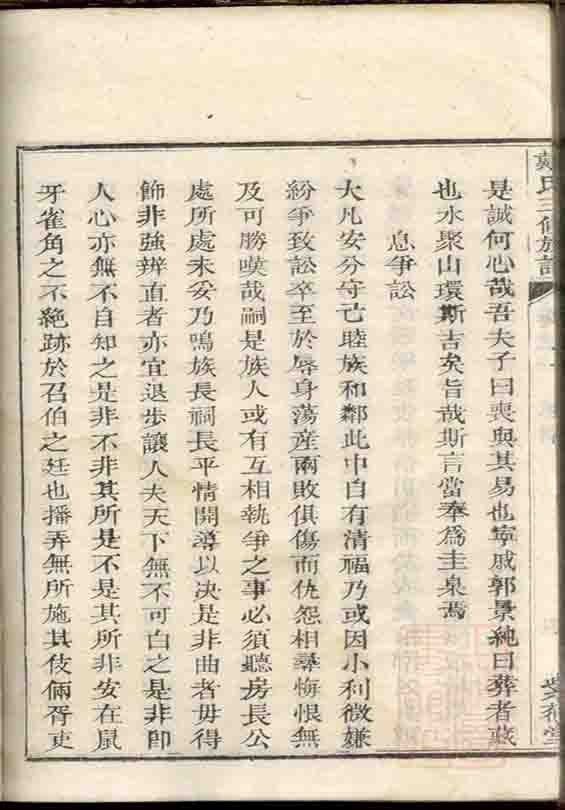 戴氏三修族譜
是誠何心哉吾夫子曰喪與其易也寧戚郭景純曰葬者藏
也水聚山環斯吉矣旨哉斯言當奉爲圭臬焉
息爭訟
大凡安分守亡睦族和鄰此中自有清福乃或因小利微嫌
紛爭致訟卒至於辱身蕩産兩敗俱傷而仇怨相尋悔恨無
及可勝嘆哉嗣是族人或有互相執爭之事必須聽房長公
處所處未妥乃鳴族長祠長平情開導以決是非曲者毋得
飾非強辨直者亦宜退步讓人夫天下無不可白之是非卽
人心亦無不自知之是非不非其所是不是其所非安在鼠
牙雀角之不絕跡於召伯之廷也播弄無所施其伎倆胥吏